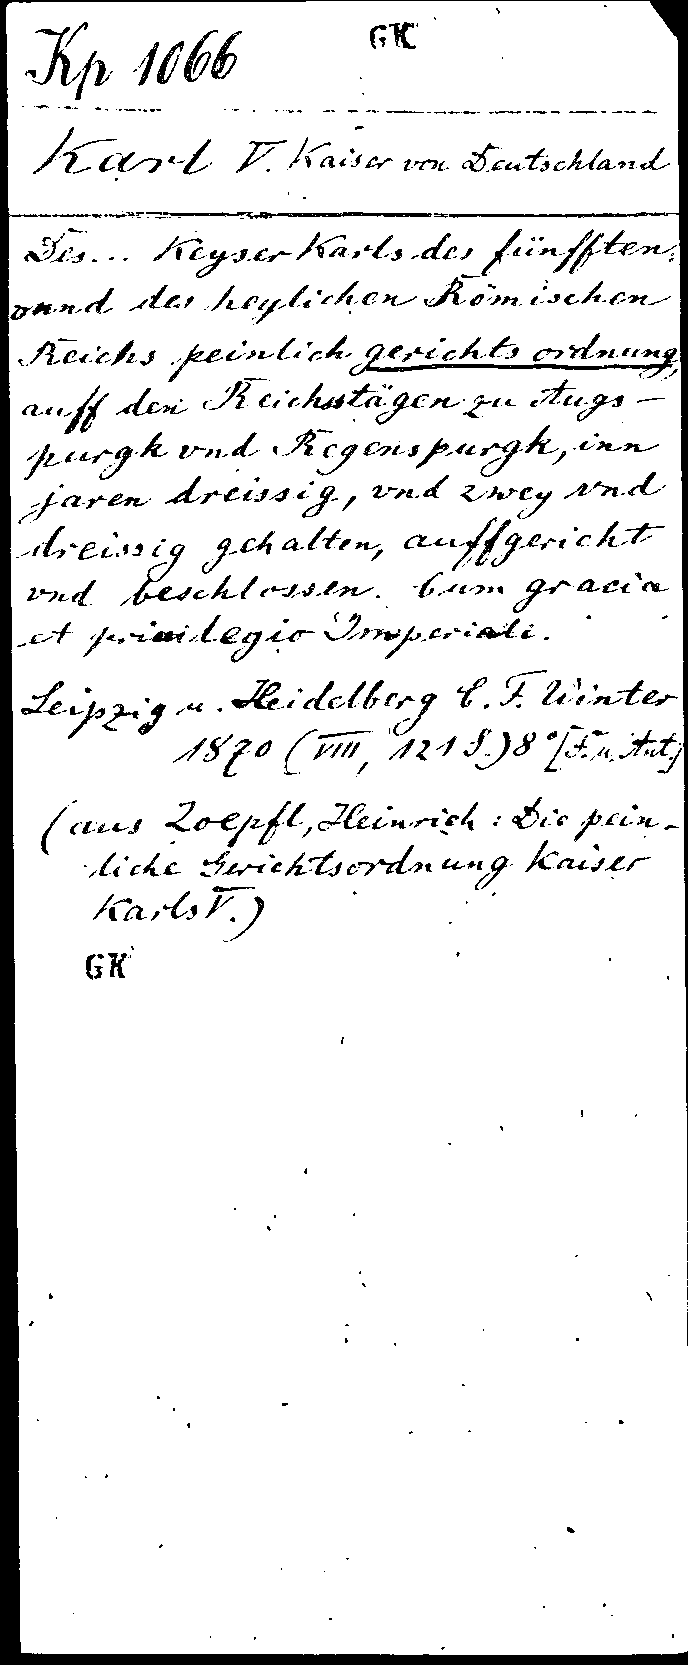 Kp 1066 GK
Karl V. Kaiser von Deutschland
Des... Keyser Karls des fünfften:
vnnd des heylichen Römischen
Reichs peinlich gerichts ordnung,
auff den Reichstägen zu Augs-
purgk vnd Regenspurgk, inn
jaren dreissig, vnd zwey vnd
dreissig gehalten, auffgericht
vnd beschlossen. Cum gracia
et priuilegio Imperiali.
Leipzig u. Heidelberg C. F. Winter
1870 (VIII, 121 S.) 8° [F. u. Ant.]
(aus Zoepfl, Heinrich: Die pein-
liche Gerichtsordnung Kaiser
Karls V.)
GK